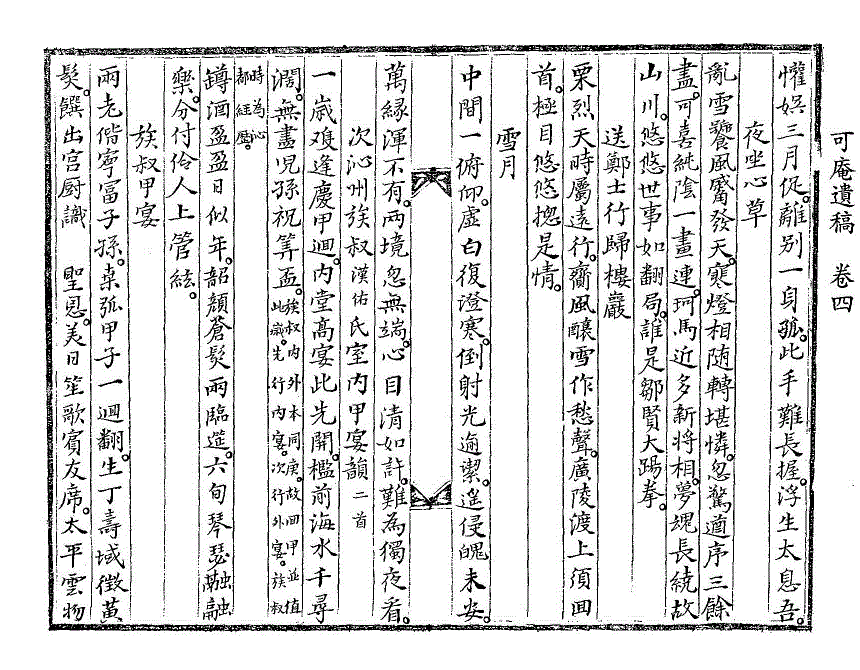 可庵遺稿 卷四
懽娛三月促。離別一身孤。此手難長握。浮生太息吾。
夜坐心草
亂雪饕風觱發天。寒燈相隨轉堪憐。忽驚遒序三餘
盡。可喜純陰一畫連。珂馬近多新將相。夢魂長繞故
山川。悠悠世事如翻局。誰是鄒賢大踢拳。
送鄭士行歸樓巖
栗烈天時屬遠行。齎風釀雪作愁聲。廣陵渡上須回
首。極目悠悠摠是情。
雪月
中間一俯仰。虛白復證寒。倒射光逾潔。遙侵魄未安。
萬緣渾不有。兩境忽無端。心目清如許。難為獨夜看。
次沁州族叔 漢佑 氏室內甲宴韻 二首
一歲難逢慶甲迴。內堂高宴此先開。檻前海水千尋
濶。無盡兒孫祝筭盃。族叔內外本同庚。故回甲並值此歲。先行內宴。次行外宴。族叔
時為沁都經歷。
罇酒盈盈日似年。韶顏蒼髮兩臨筵。六旬琴瑟融融
樂。分付伶人上管絃。
族叔甲宴
兩老偕寧富子孫。桑弧甲子一迴翻。生丁壽域徵黃
髮。饌出宮厨識 聖恩。美日笙歌賓友席。太平雲物